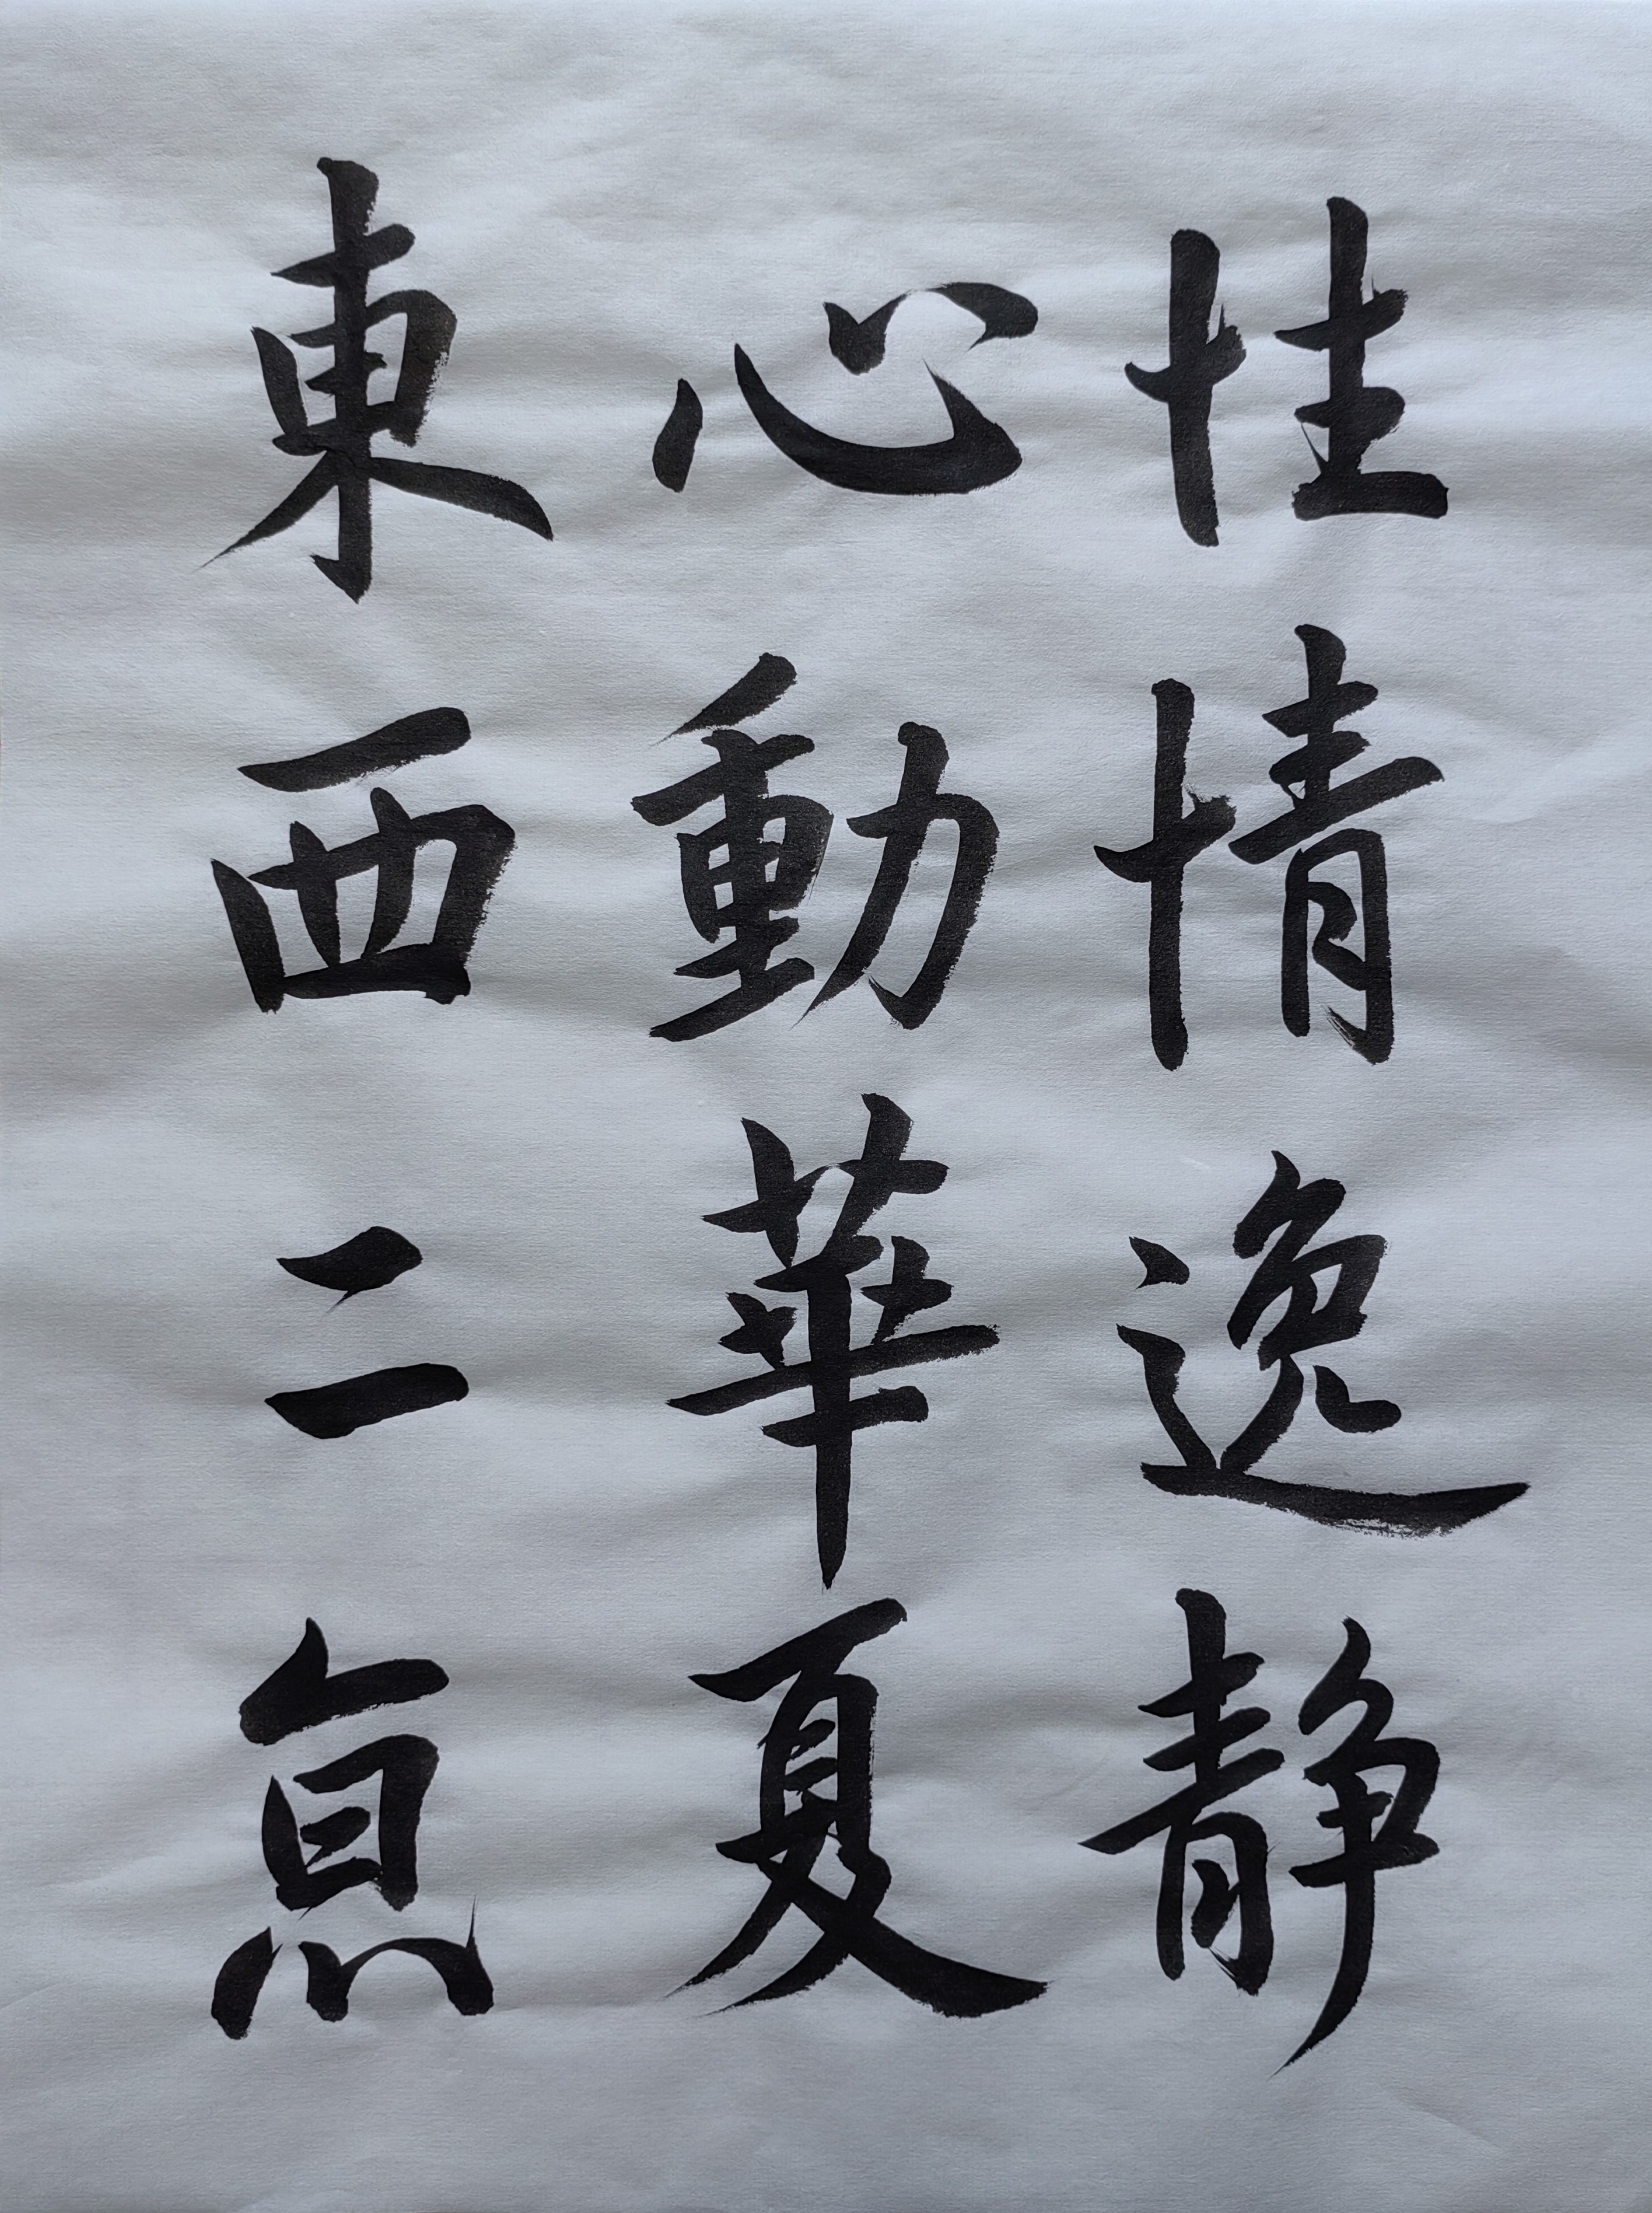 性情逸静
心動華夏
東西二亰